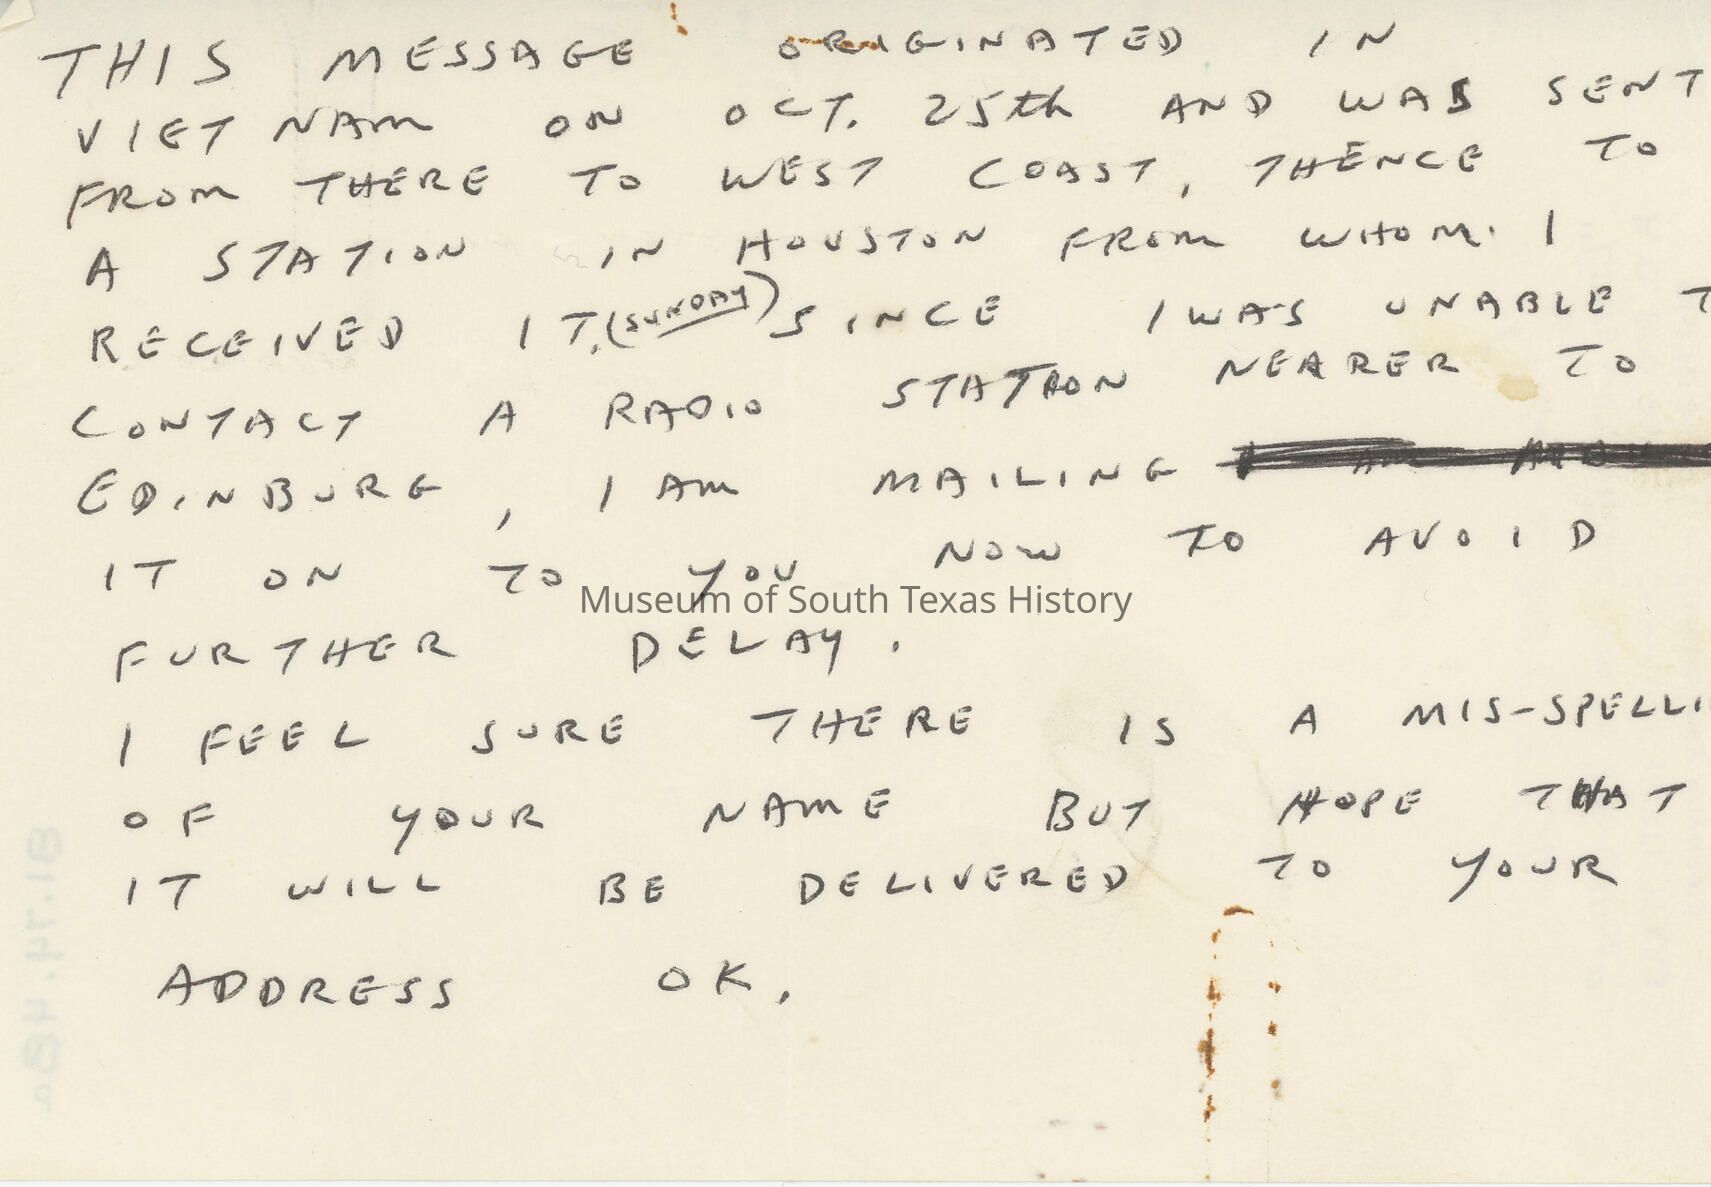 THIS MESSAGE ORIGINATED IN
VIET NAM ON OCT. 25th AND WAS SENT
FROM THERE TO WEST COAST, THENCE TO
A STATION IN HOUSTON FROM WHOM I
RECEIVED IT. (SUNDAY) SINCE I WAS UNABLE T
CONTACT A RADIO STATION NEARER TO
EDINBURG, I AM MAILING
IT ON TO YOU NOW TO AVOID
Museum of South Texas History
FURTHER DELAY.
I FEEL SURE THERE IS A MIS-SPELLI
OF YOUR NAME BUT HOPE THAT
IT WILL BE DELIVERED TO YOUR
ADDRESS OK.